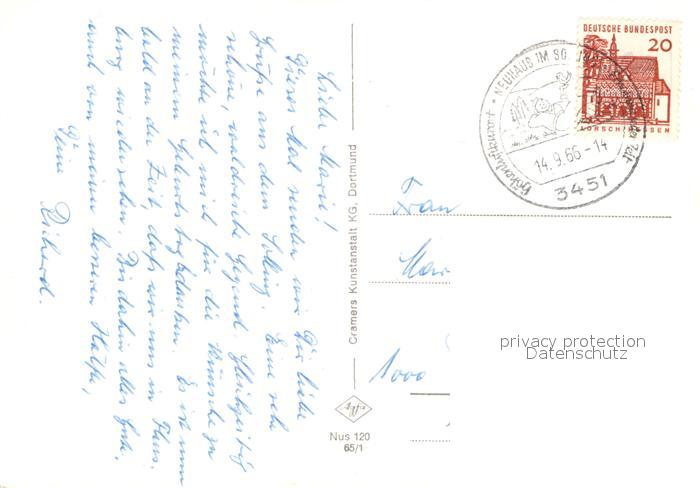 Liebe Marie!
Dieses Mal senden wir Dir liebe
Grüße aus dem Solling. Eine sehr
schöne, waldreiche Gegend. Gleichzeitig
möchte ich mich für die Wünsche zu
meinem Geburtstag bedanken. Es ist nun
bald an der Zeit, daß wir uns in
wiedersehen. Bis dahin alles Gute,
auch von meiner besseren Hälfte,
Dein
Richard.
Cramers Kunstanstalt KG, Dortmund
Agfa
Nus 120
65/1
DEUTSCHE BUNDESPOST
20
LORSCH/HESSEN
NEUHAUS IM SO
Höhenluftkurort
14.9.66-14
3451
Frau
Mar
1000
privacy protection
Datenschutz